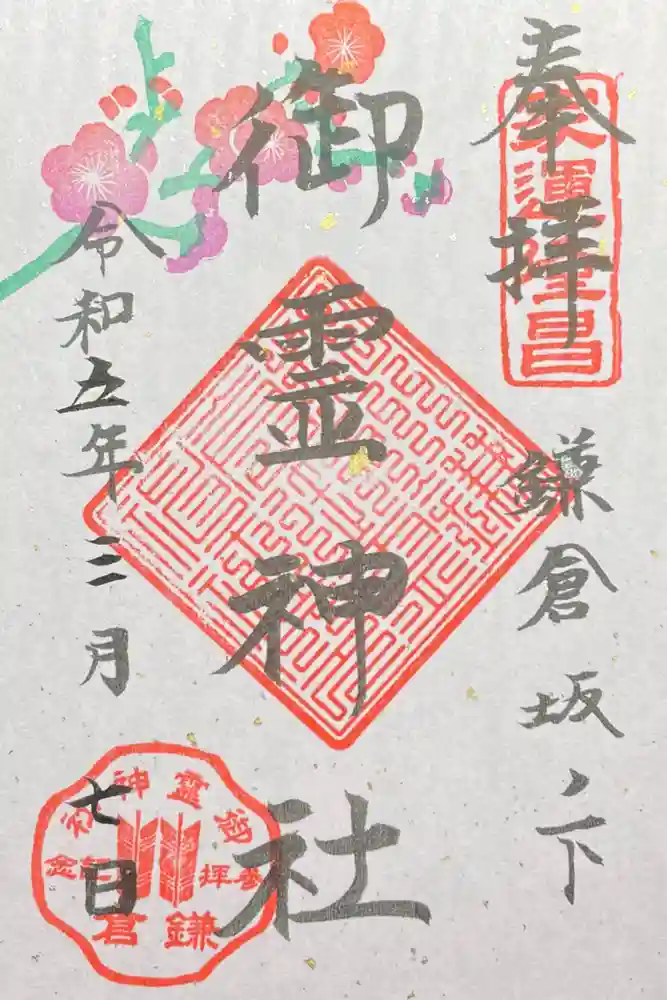 奉拝
家運隆昌
鎌倉坂ノ下
御霊神社
令和五年三月七日
御霊神社
参拝記念
鎌倉